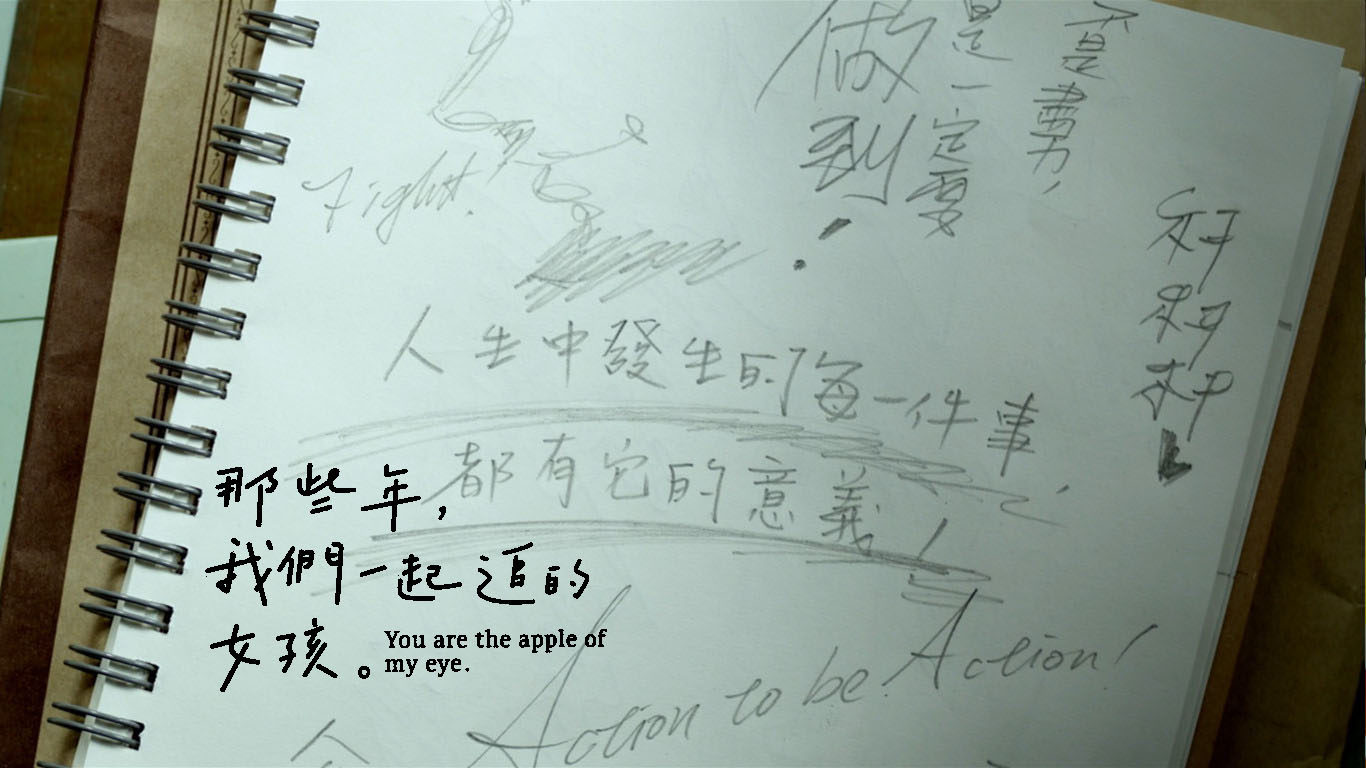 不是盡力，
是一定要
做到！
Fight.
人生中發生的每一件事，
都有它的意義！
那些年，
我們一起追的
女孩。
You are the apple of
my eye.
Action to be Action!